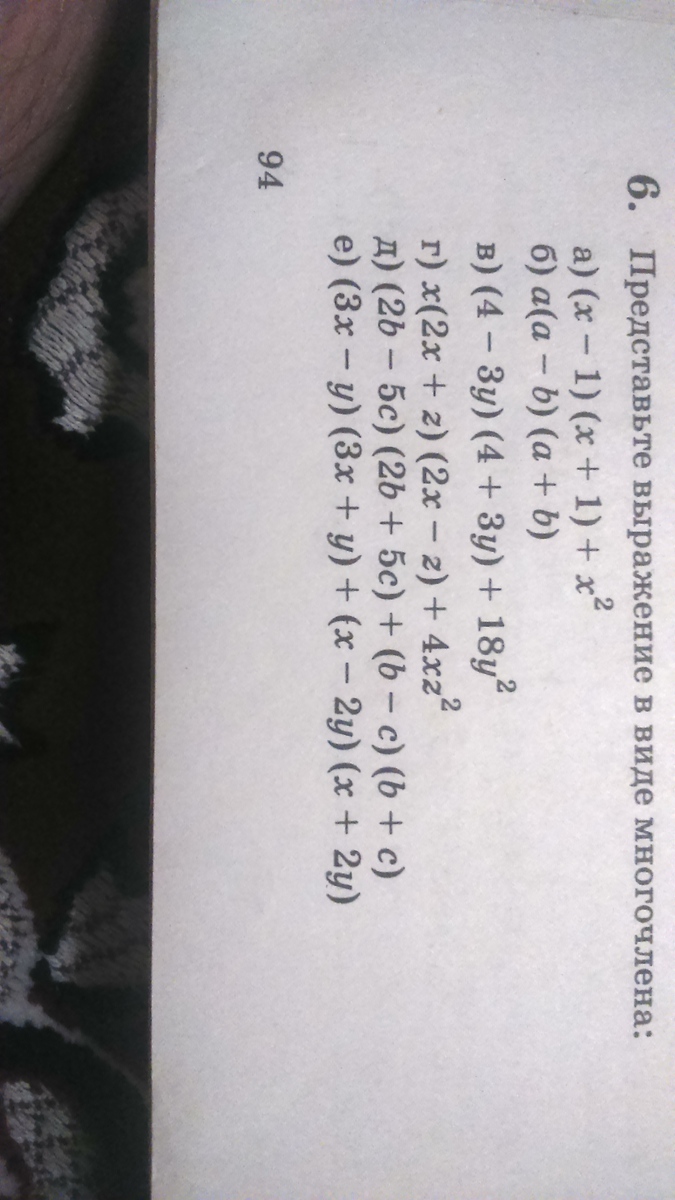 6. Представьте выражение в виде многочлена:
а) (x − 1) (x + 1) + x²
б) a(a − b) (a + b)
в) (4 − 3y) (4 + 3y) + 18y²
г) x(2x + z) (2x − z) + 4xz²
д) (2b − 5c) (2b + 5c) + (b − c) (b + c)
е) (3x − y) (3x + y) + (x − 2y) (x + 2y)
94